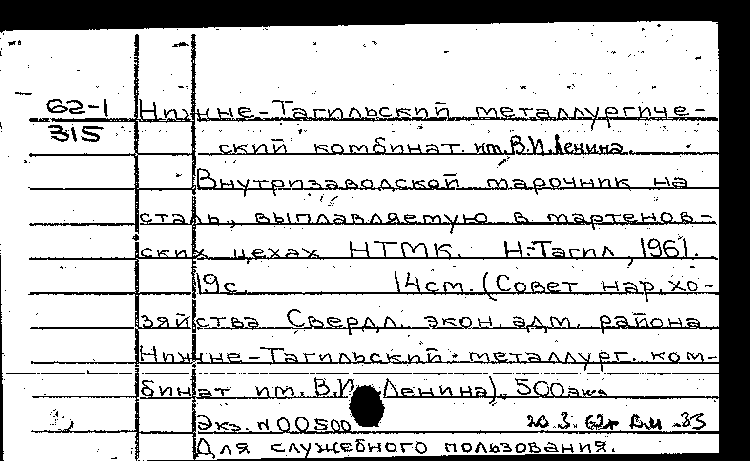 62-1
315
Нижне-Тагильский металлургиче-
ский комбинат им. В.И. Ленина.
Внутризаводской марочник на
сталь, выплавляемую в мартенов-
ских цехах НТМК. Н-Тагил, 1961.
19с. 14см. (Совет нар. хо-
зяйства Свердл. экон. адм. района
Нижне-Тагильский металлург. ком-
бинат им. В.И. Ленина). 500экз
Экз. N 00500
20.3.62г
Для служебного пользования.